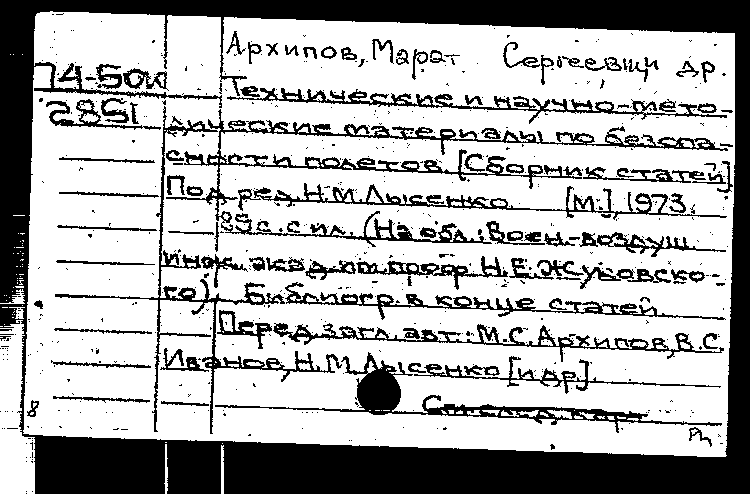 Архипов, Марат Сергеевич и др.
74-50и
2851
Технические и научно-мето-
дические материалы по безопа-
сности полетов. [Сборник статей]
Под ред. Н.М. Лысенко. [М.], 1973.
с. с ил. (На обл.: Воен.-воздуш.
инж. акад. им. проф. Н.Е. Жуковско-
го). Библиогр. в конце статей.
Перед загл. авт.: М.С. Архипов, В.С.
Иванов, Н.М. Лысенко [и др].
См. след. карт
8